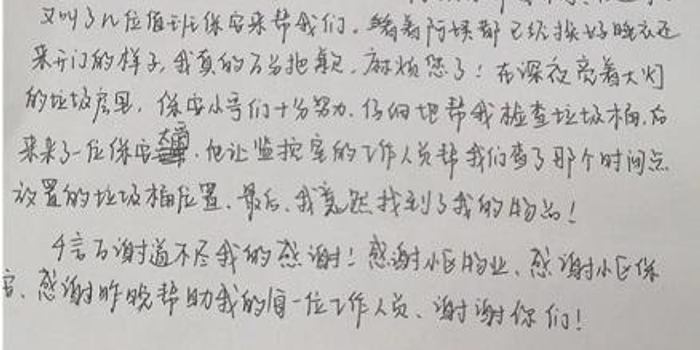 又叫了几位值班保安来帮我们，看着阿姨都已经换好睡衣还
来开门的样子，我真的万分抱歉，麻烦您了！在深夜亮着大灯
的垃圾房里，保安小哥们十分努力，仔细地帮我检查垃圾桶，后
来来了一位保安大哥，他让监控室的工作人员帮我们查了那个时间点
放置的垃圾桶位置，最后，我竟然找到了我的物品！
千言万谢道不尽我的感谢！感谢小区物业、感谢小区保
安、感谢昨晚帮助我的每一位工作人员、谢谢你们！